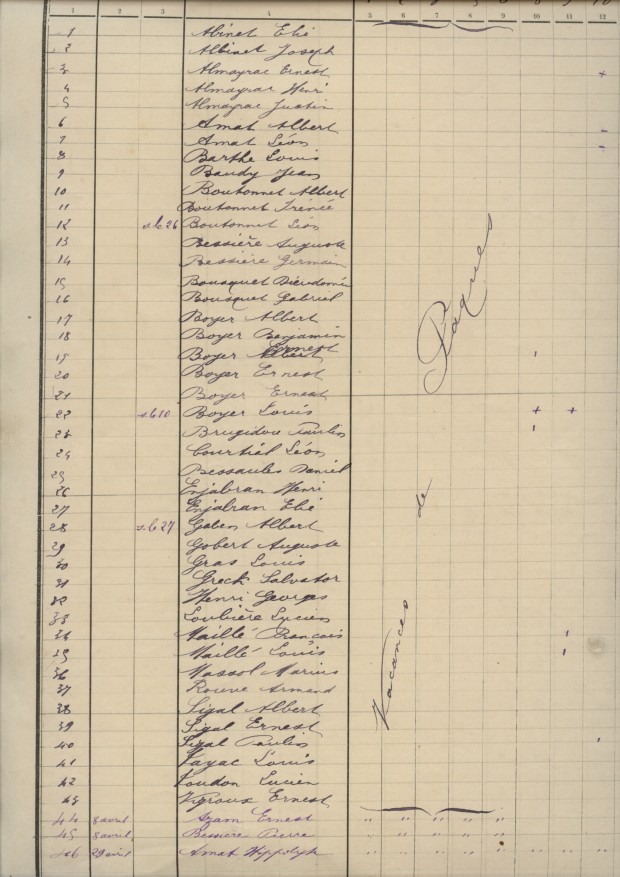 1 2 3 4 5 6 7 8 9 10 11 12
1 Abinet Elie
2 Albinet Joseph
3 Almayrac Ernest +
4 Almayrac Henri
5 Almayrac Justin
6 Amat Albert
7 Amat Léon
8 Barthe Louis
9 Baudy Jean
10 Boutonnet Albert
11 Boutonnet Irénée
12 26 Boutonnet Léon
13 Bessière Auguste
14 Bessière Germain
15 Bousquet Dieudonné
16 Bousquet Gabriel
17 Boyer Albert
18 Boyer Benjamin
19 Boyer Albert Ernest
20 Boyer Ernest
21 Boyer Ernest
22 10 Boyer Louis + +
23 Brugidou Paulin
24 Courtial Léon
25 Bessaules Daniel
26 Enjalran Henri
27 Enjalran Elie
28 27 Gaben Albert
29 Gobert Auguste
30 Gras Louis
31 Greck Salvator
32 Henri Georges
33 Loubière Lucien
34 Maillé François
35 Maillé Louis
36 Massol Marius
37 Rouve Armand
38 Sigal Albert
39 Sigal Ernest
40 Sigal Paulin
41 Vayac Louis
42 Voudon Lucien
43 Vigroux Ernest
44 8 avril Azam Ernest " " " " "
45 8 avril Bessière Pierre " " " "
46 29 avril Amat Hippolyte " " " " " " " "
Vacances de Pâques